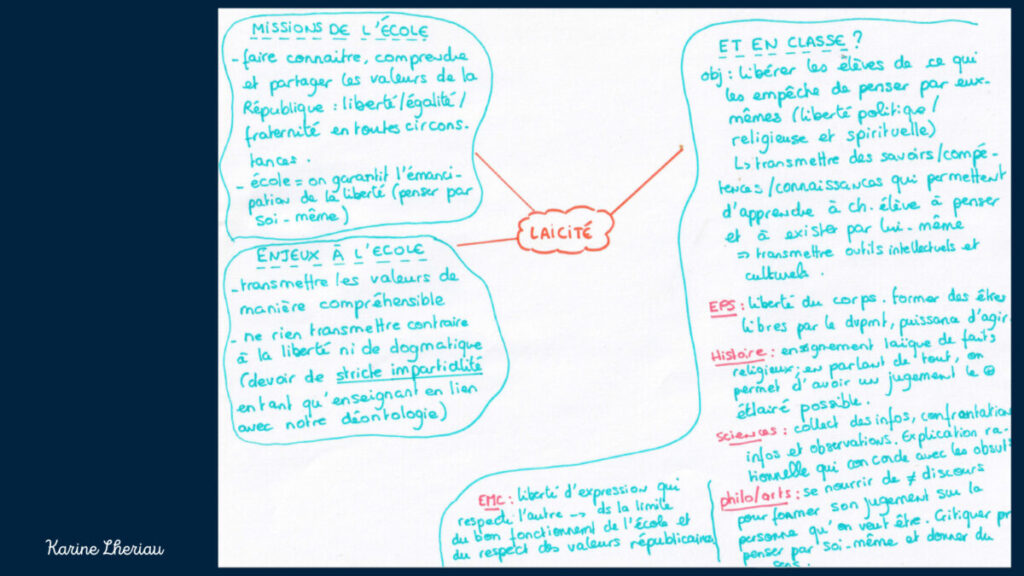 MISSIONS DE L'ÉCOLE
- faire connaitre, comprendre
et partager les valeurs de la
République : liberté/égalité/
fraternité en toutes circons-
tances.
- école = on garantit l'émanci-
pation de la liberté (penser par
soi-même)
ENJEUX À L'ECOLE
- transmettre les valeurs de
manière compréhensible
- ne rien transmettre contraire
à la liberté ni de dogmatique
(devoir de stricte impartialité
en tant qu'enseignant en lien
avec notre déontologie)
LAICITÉ
ET EN CLASSE ?
obj : libérer les élèves de ce qui
les empêche de penser par eux-
mêmes (liberté politique/
religieuse et spirituelle)
↳ transmettre des savoirs/compé-
tences/connaissances qui permettent
d'apprendre à ch. élève à penser
et à exister par lui-même
⇒ transmettre outils intellectuels et
culturels.
EPS : liberté du corps. former des êtres
libres par le dvpmt, puissance d'agir.
Histoire : enseignement laïque de faits
religieux ; en parlant de tout, on
permet d'avoir un jugement le ⊕
éclairé possible.
Sciences : collect des infos, confrontation
infos et observations. Explication ra-
tionnelle qui concorde avec les obsv
philo/arts : se nourrir de ≠ discours
pour former son jugement sur la
personne qu'on veut être. Critiquer pr
penser par soi-même et donner du
sens.
EMC : liberté d'expression qui
respecte l'autre → ds la limite
du bon fonctionnement de l'école et
du respect des valeurs républicaines
Karine Lheriau